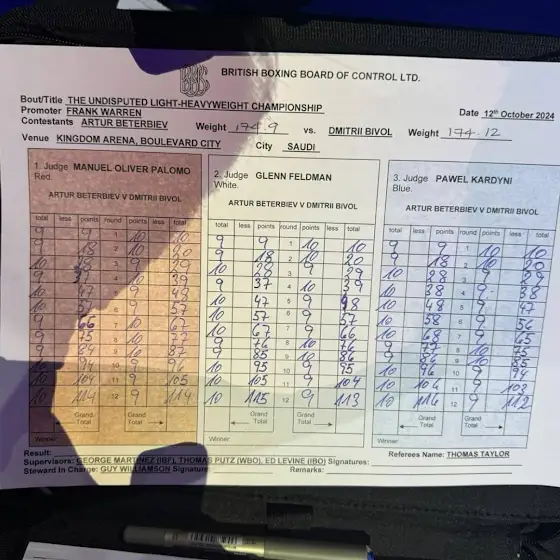 BRITISH BOXING BOARD OF CONTROL LTD.
Bout/Title THE UNDISPUTED LIGHT-HEAVYWEIGHT CHAMPIONSHIP
Promoter FRANK WARREN Date 12th October 2024
Contestants ARTUR BETERBIEV Weight 174.9 vs. DMITRII BIVOL Weight 174.12
Venue KINGDOM ARENA, BOULEVARD CITY City SAUDI
1. Judge MANUEL OLIVER PALOMO
Red.
ARTUR BETERBIEV V DMITRII BIVOL
total less points round points less total
9 9 1 10 10
9 18 2 10 20
10 3 9 29
4 10 39
10 47 5 9 48
10 57 6 9 57
9 66 7 10 67
9 75 8 10 77
9 84 9 10 87
10 94 10 9 96
10 104 11 9 105
10 114 12 9 114
Grand Total Grand Total
Winner
2. Judge GLENN FELDMAN
White.
ARTUR BETERBIEV V DMITRII BIVOL
total less points round points less total
9 9 1 10 10
9 18 2 10 20
10 28 3 9 29
9 37 4 10 39
10 47 5 9 48
10 57 6 9 57
10 67 7 9 66
9 76 8 10 76
9 85 9 10 86
10 95 10 9 95
10 105 11 9 104
10 115 12 9 113
Grand Total Grand Total
Winner
3. Judge PAWEL KARDYNI
Blue.
ARTUR BETERBIEV V DMITRII BIVOL
total less points round points less total
9 9 1 10 10
9 18 2 10 20
10 28 3 9 29
10 38 4 9 38
10 48 5 9 47
10 58 6 9 56
10 68 7 9 65
9 8 10 75
9 86 9 10 85
10 96 10 9 94
10 106 11 9 103
10 116 12 9 112
Grand Total Grand Total
Winner
Result:
Supervisors: GEORGE MARTINEZ (IBF), THOMAS PUTZ (WBO), ED LEVINE (IBO) Signatures: Referees Name: THOMAS TAYLOR
Steward In Charge: GUY WILLIAMSON Signature: Remarks: